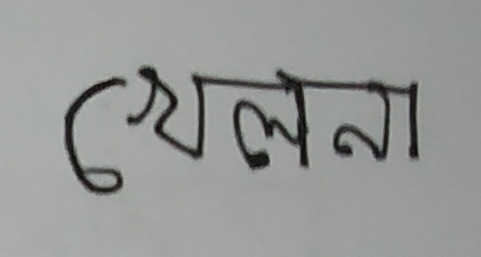 খেলনা